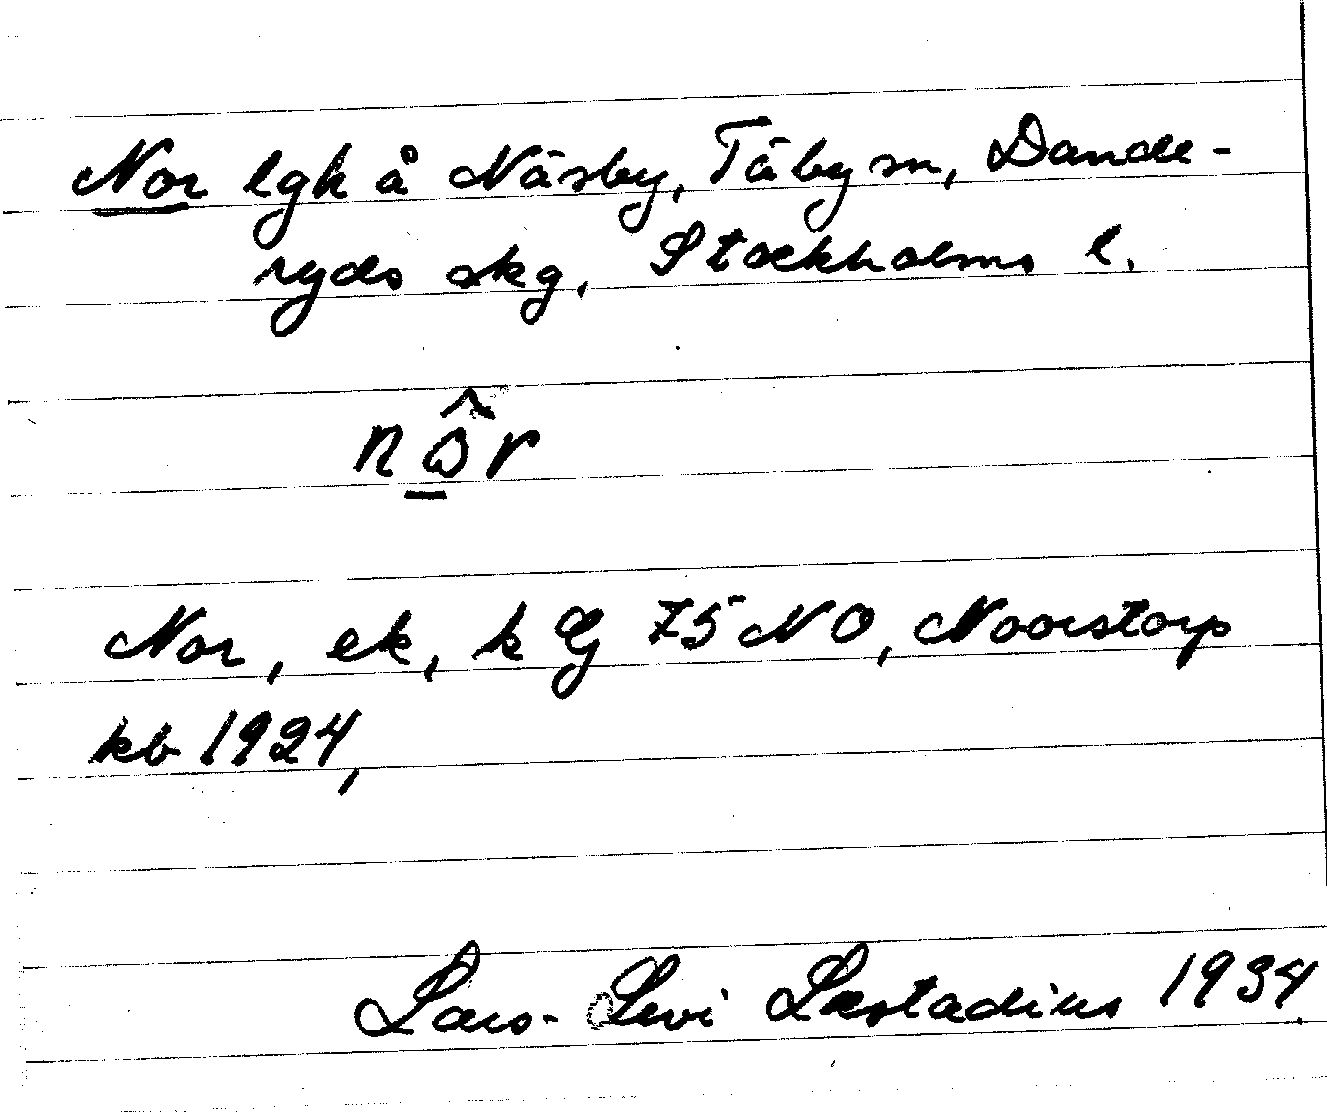 Nor lgh å Näsby, Täby sn, Dande-
ryds skg, Stockholms l.
nω̂r
Nor, ek, k G 75 NO, Noorstorp
kb 1924,
Lars-Levi Læstadius 1934